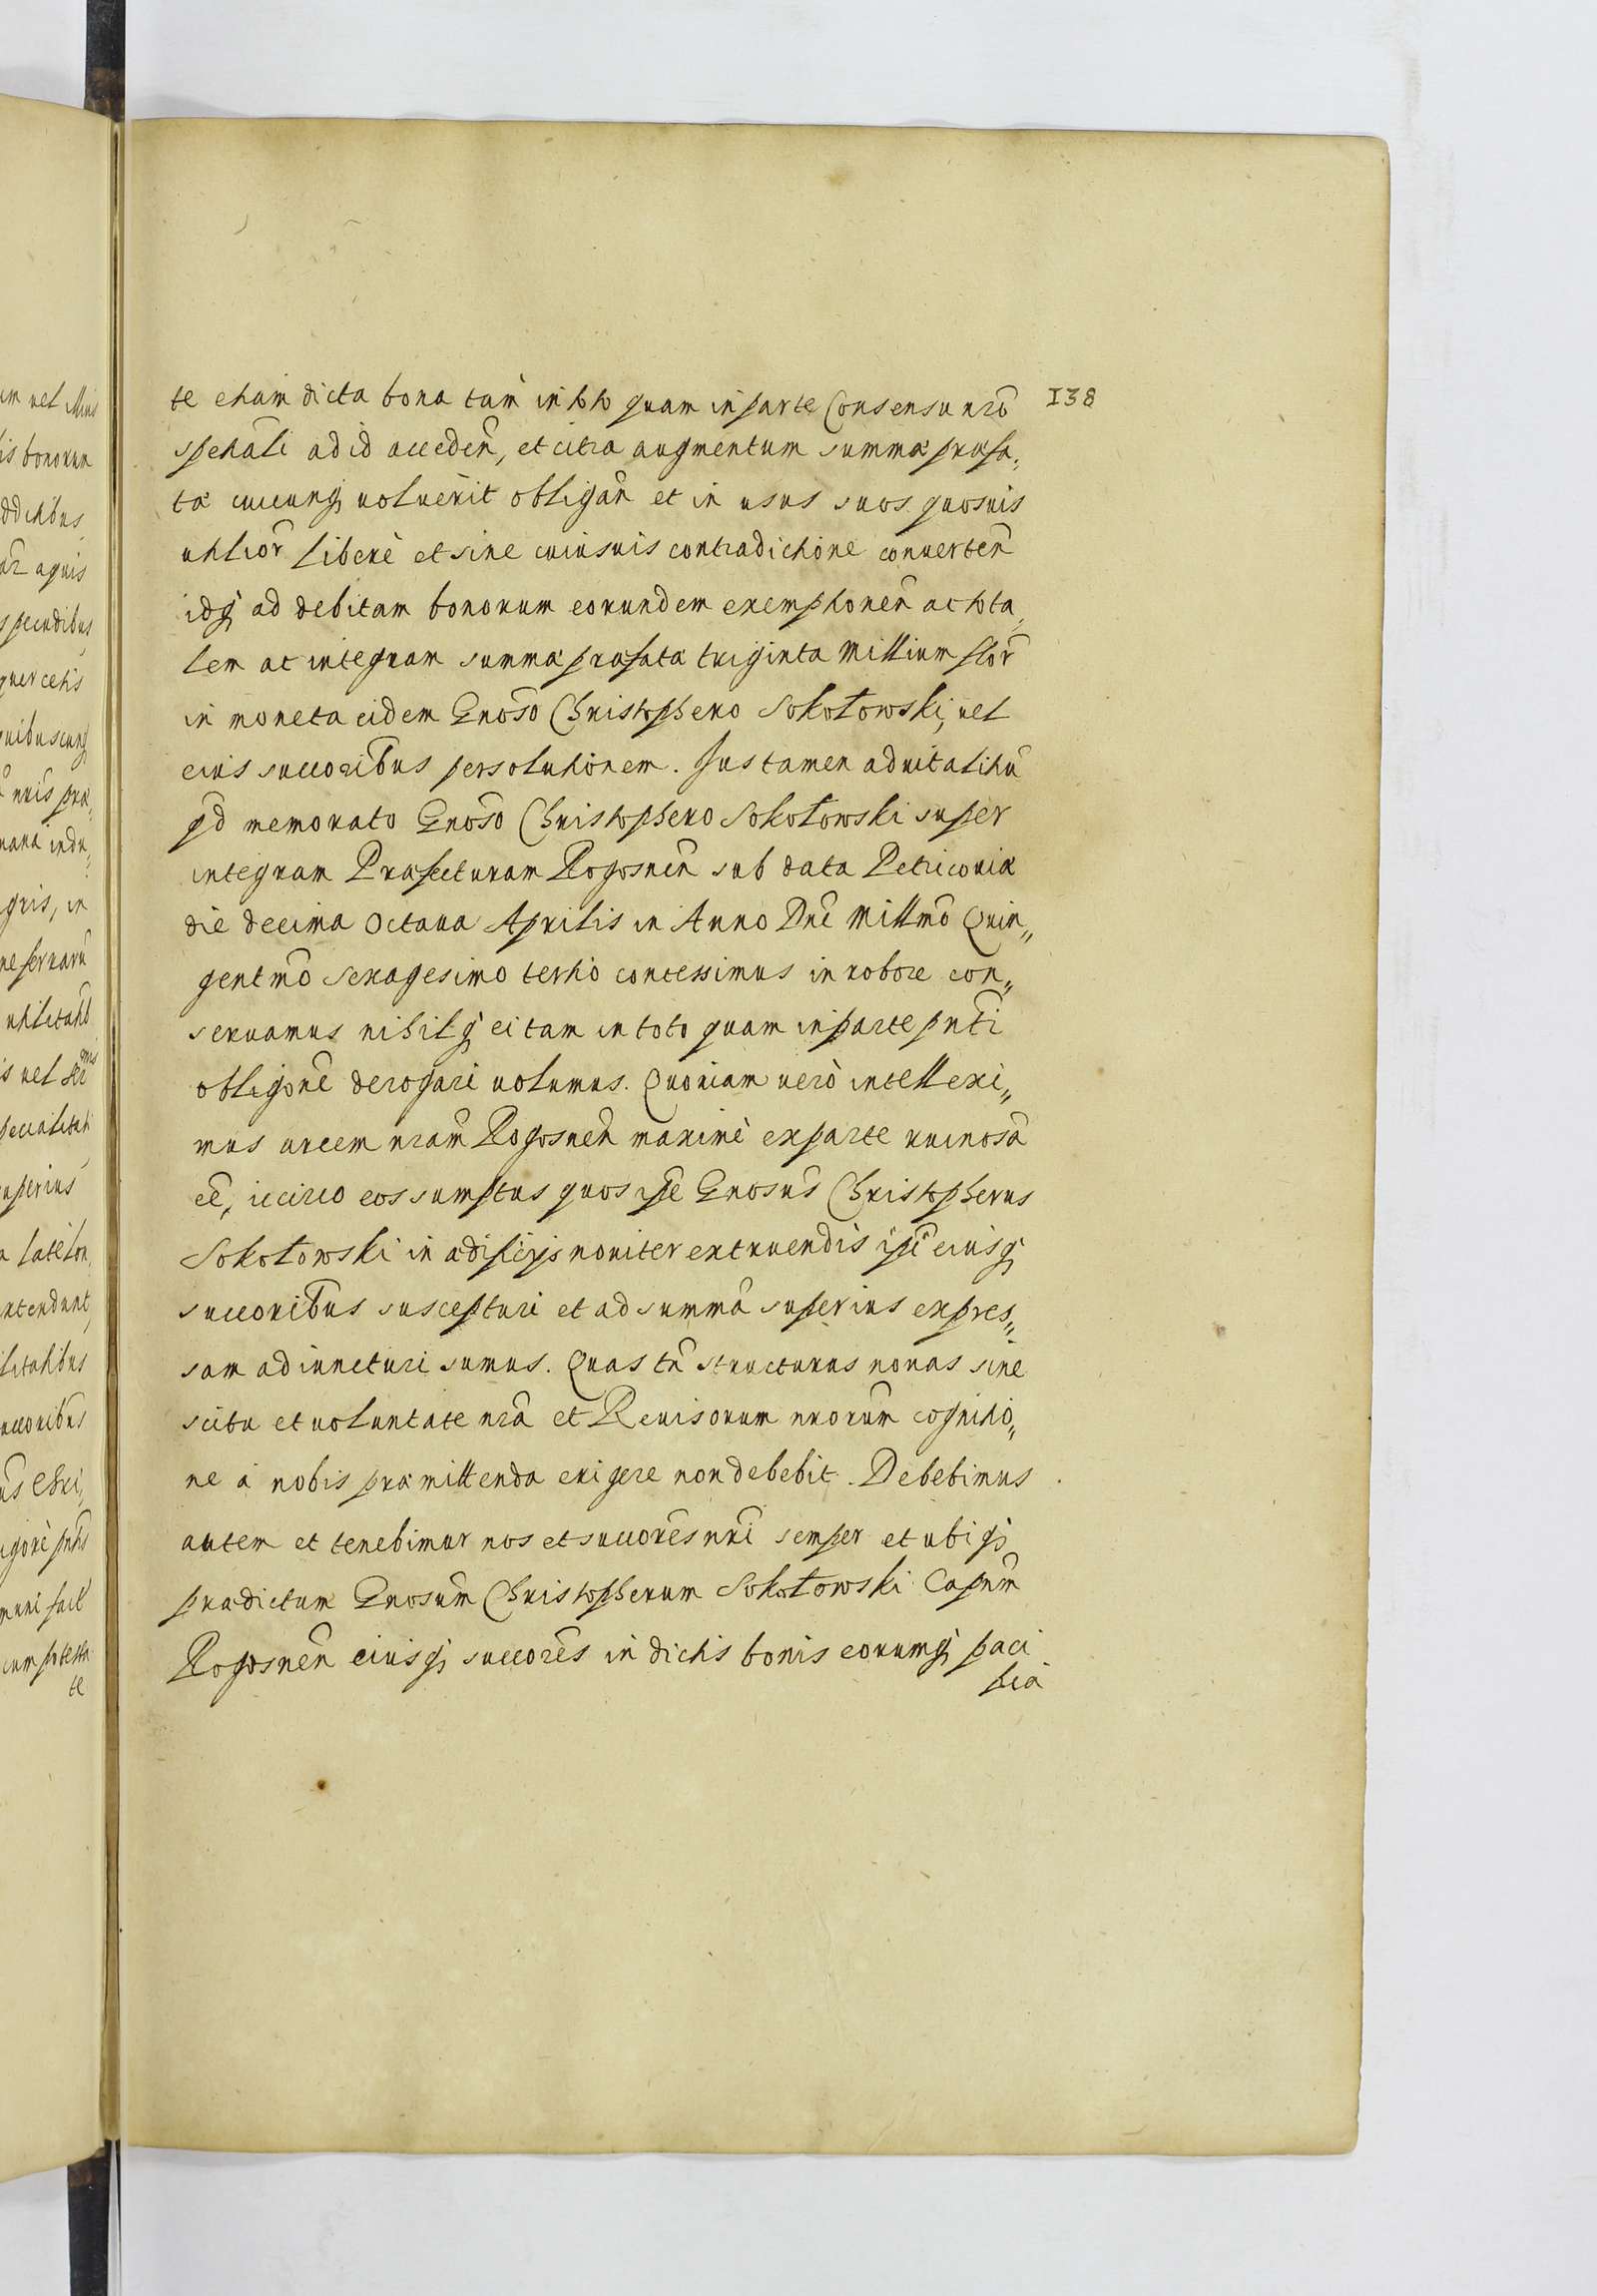 te etiam dicta bona tam in toto quam in parte Consensu nr̃o
speciali ad id acceden̄, et citra augmentum summæ præfa„
tæ cuicunq3 voluerit obligan̄ et in usus suos quosvis
utilior̃ liberè et sine cuiusvis contradictione converten̄
idq3 ad debitam bonorum eorundem exemptionem̄ ac tota„
lem ac integram summæ præfatæ triginta Millium flor̃
in moneta eidem Gnōso Christophero Sokołowski, vel
eius succorib̃us persolutionem. Jus tamen advitalitiū
qd̄ memorato Gnōso Christophero Sokołowski super
integram Præfecturam Rogosnen̄ sub data Petricoviæ
die decima Octava Aprilis in Anno Dnī Millmo Quin„
gentmō sexagesimo tertio contessimus in robore con„
servamus nihilq3 ei tam in toto quam in parte pn̄ti
obligōne derogari volumus. Quoniam verò intellexi„
mus arcem nr̃am Rogosnen̄ maximè ex parte ruinosā
eē, iccirco eos sumptus quos ipē Gnosus̄ Christopherus
Sokołowski in ædificijs noviter extruendis ipī eiusq3
succorib̃us suscepturi et ad summā superius expres„
sam adiuncturi sumus. Quas tn̄ structuras novas sine
scitu et voluntate nr̃a et Revisorum nr̃orum cognitio„
ne à nobis præmittenda exigere non debebit. Debebimus
autem et tenebimur nos et succores̄ nr̃i semper et ubiq3
prædictum Gnosum̄ Christopherum Sokołowski Capnm̄
Rogosnen̄ eiusq3 succores̄ in dictis bonis eorumq3 paci
fica
138